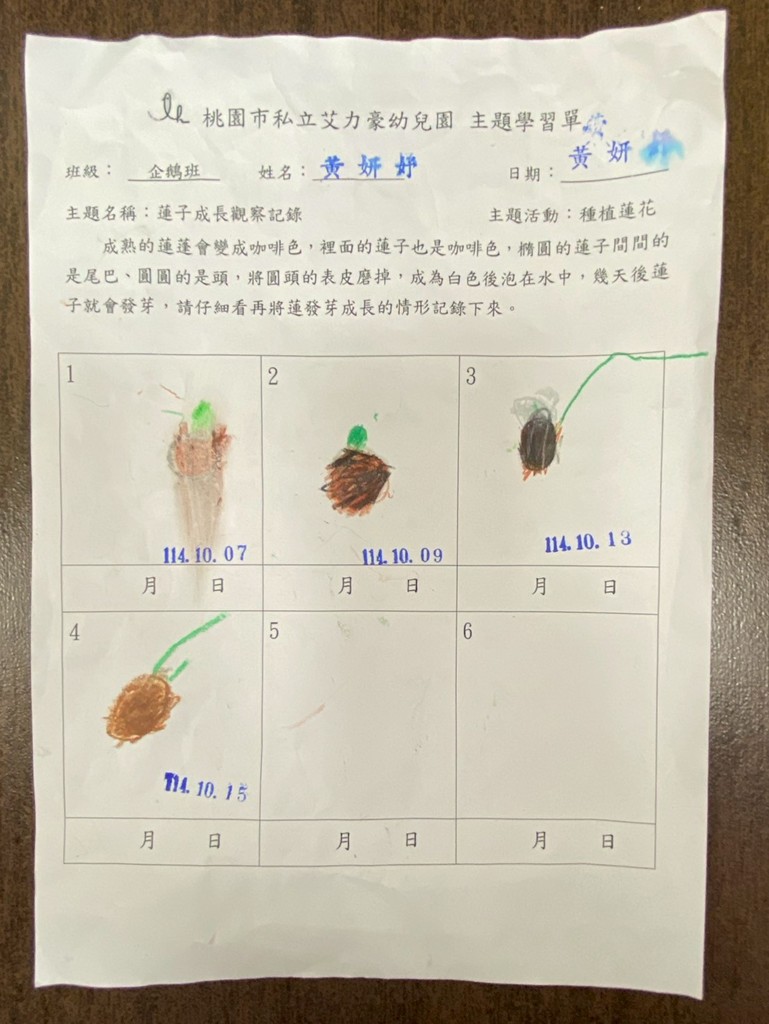 桃園市私立艾力豪幼兒園 主題學習單
班級： 企鵝班 姓名： 黃妍妤 日期： 黃妍
主題名稱：蓮子成長觀察記錄 主題活動：種植蓮花
成熟的蓮蓬會變成咖啡色，裡面的蓮子也是咖啡色，橢圓的蓮子間間的
是尾巴、圓圓的是頭，將圓頭的表皮磨掉，成為白色後泡在水中，幾天後蓮
子就會發芽，請仔細看再將蓮發芽成長的情形記錄下來。
1 2 3
114.10.07 114.10.09 114.10.13
月 日 月 日 月 日
4 5 6
114.10.15
月 日 月 日 月 日